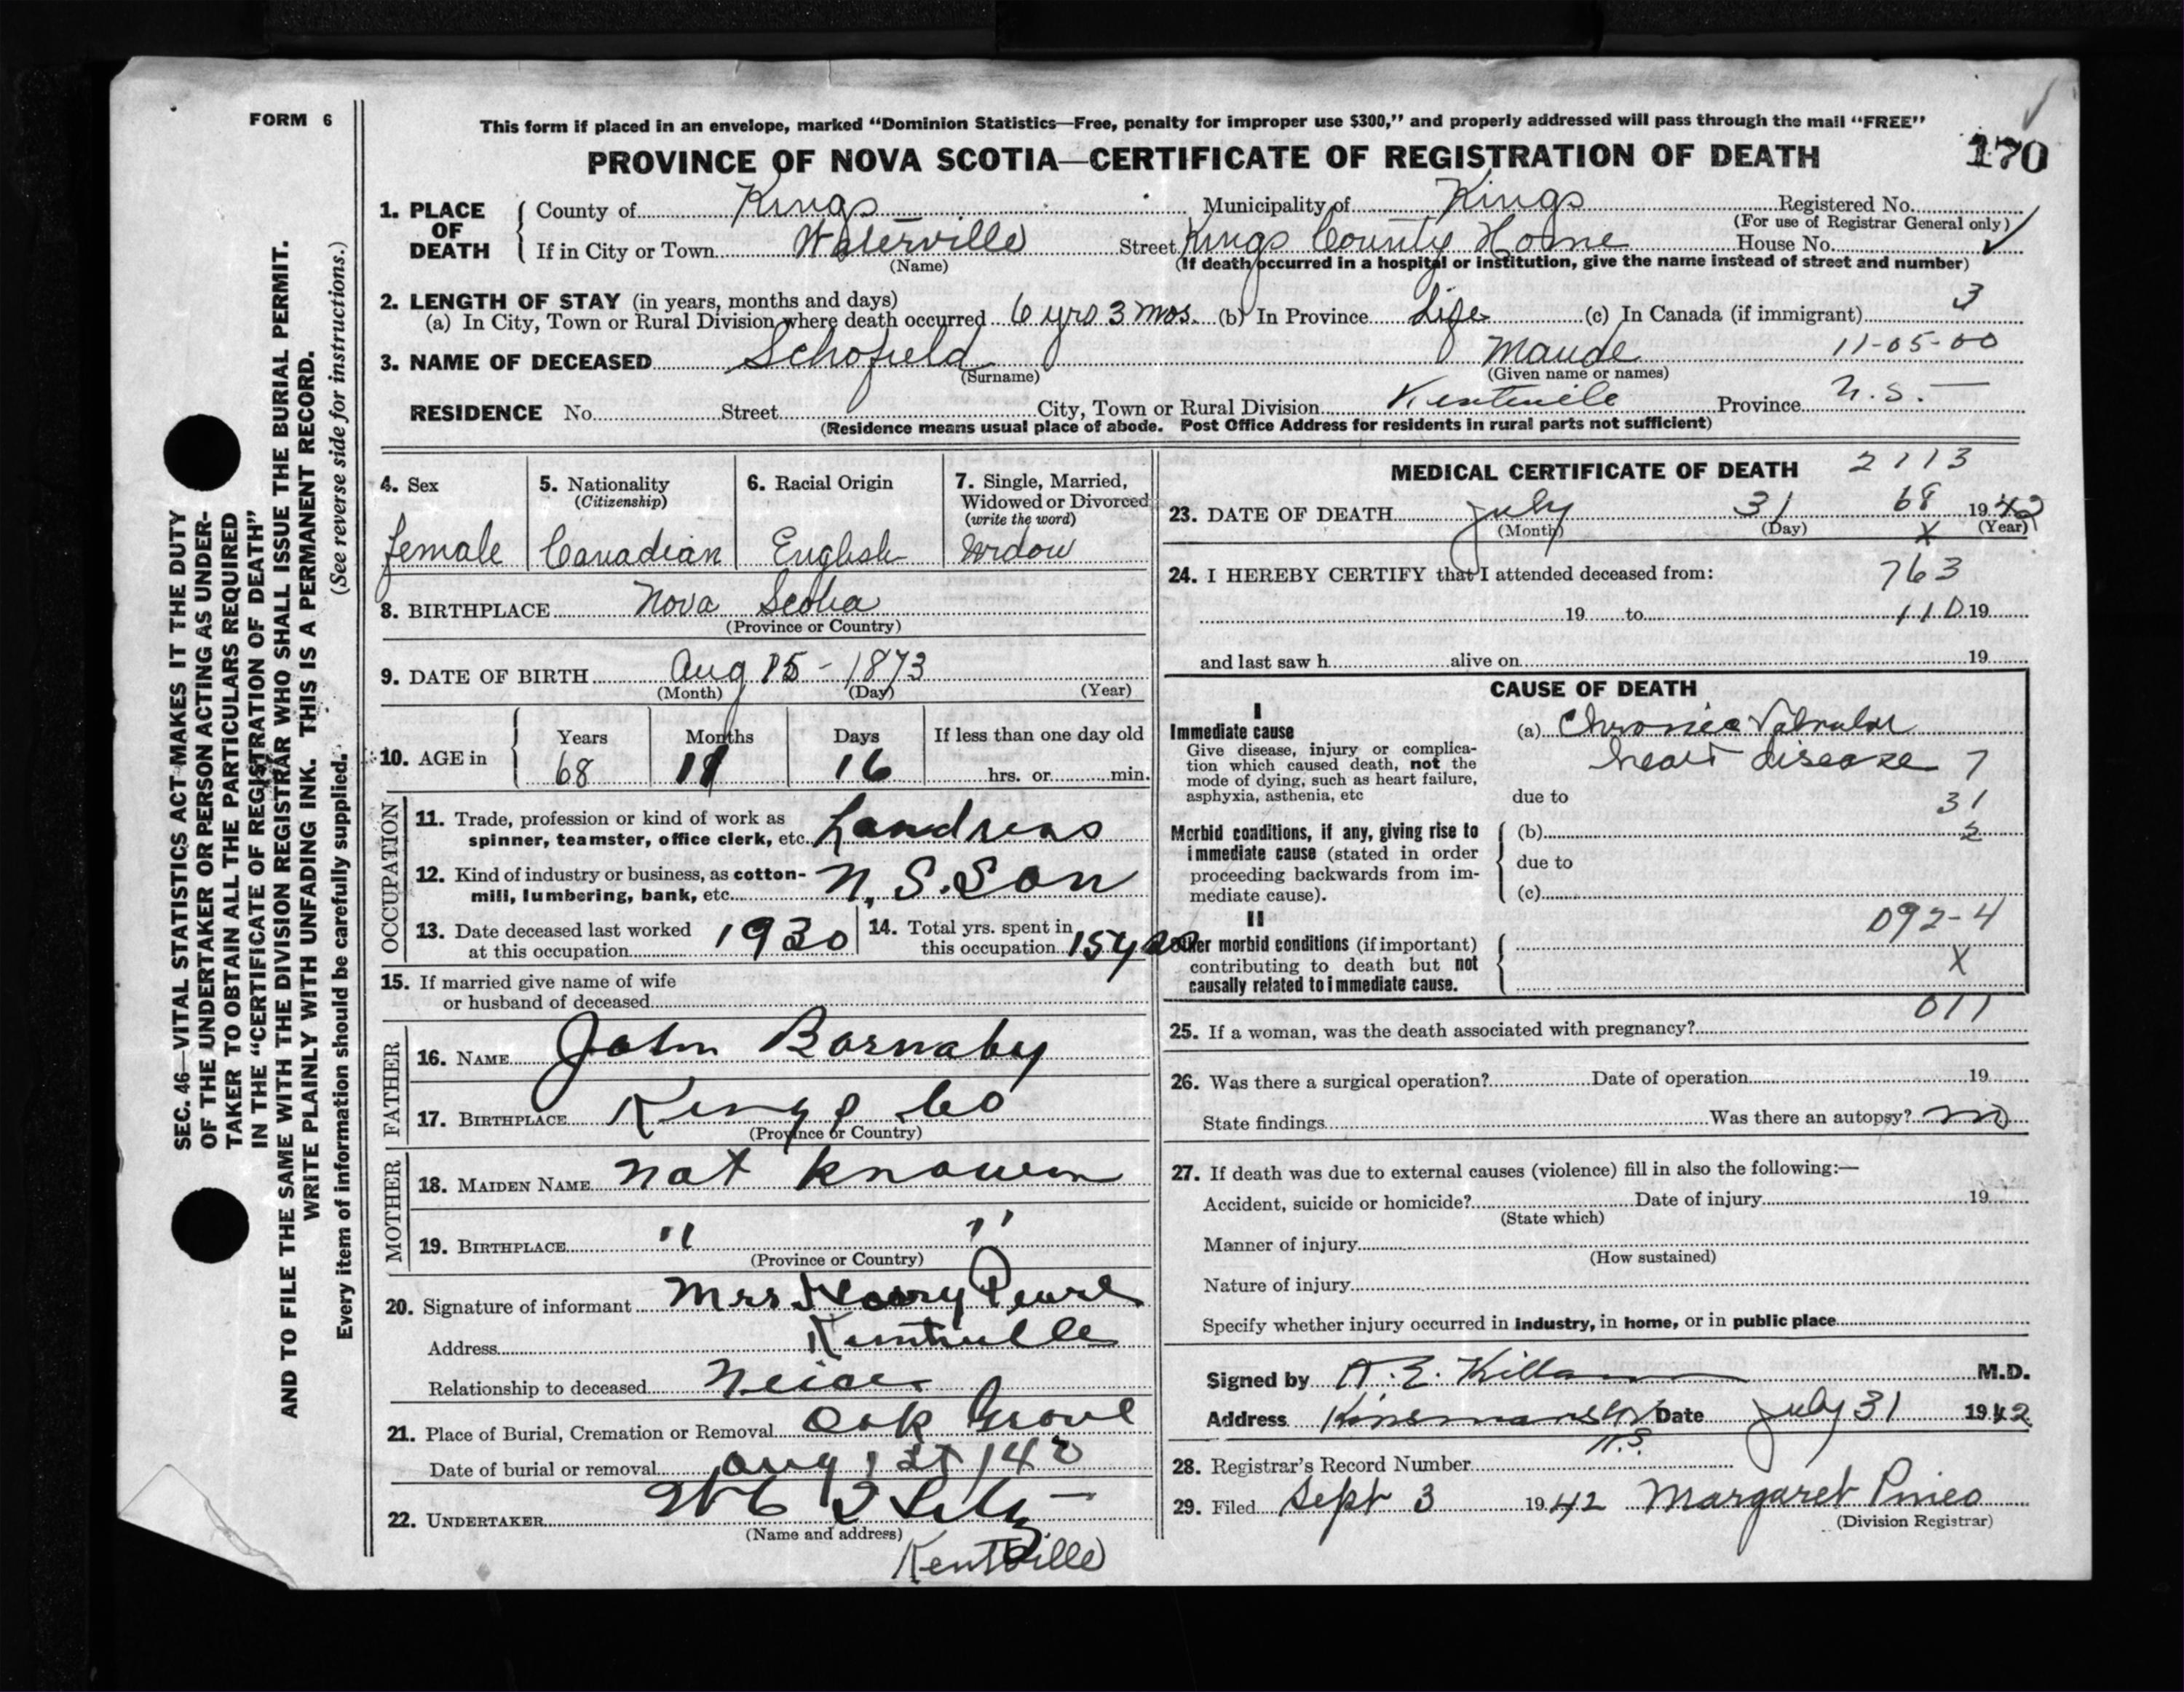 FORM 6
This form if placed in an envelope, marked "Dominion Statistics—Free, penalty for improper use $300," and properly addressed will pass through the mail "FREE"
PROVINCE OF NOVA SCOTIA—CERTIFICATE OF REGISTRATION OF DEATH
170
SEC. 46—VITAL STATISTICS ACT MAKES IT THE DUTY
OF THE UNDERTAKER OR PERSON ACTING AS UNDER-
TAKER TO OBTAIN ALL THE PARTICULARS REQUIRED
IN THE "CERTIFICATE OF REGISTRATION OF DEATH"
AND TO FILE THE SAME WITH THE DIVISION REGISTRAR WHO SHALL ISSUE THE BURIAL PERMIT.
WRITE PLAINLY WITH UNFADING INK. THIS IS A PERMANENT RECORD.
Every item of information should be carefully supplied. (See reverse side for instructions.)
1. PLACE OF DEATH
County of Kings Municipality of Kings Registered No.
(For use of Registrar General only)
If in City or Town Waterville Street Kings County Home House No.
(Name) (If death occurred in a hospital or institution, give the name instead of street and number)
2. LENGTH OF STAY (in years, months and days)
(a) In City, Town or Rural Division where death occurred 6 yrs 3 mos. (b) In Province Life (c) In Canada (if immigrant) 3
3. NAME OF DECEASED Schofield Maude 11-05-00
(Surname) (Given name or names)
RESIDENCE No. Street City, Town or Rural Division Kentville Province N.S.
(Residence means usual place of abode. Post Office Address for residents in rural parts not sufficient)
4. Sex
female
5. Nationality
(Citizenship)
Canadian
6. Racial Origin
English
7. Single, Married,
Widowed or Divorced
(write the word)
Widow
8. BIRTHPLACE Nova Scotia
(Province or Country)
9. DATE OF BIRTH Aug 15 - 1873
(Month) (Day) (Year)
10. AGE in
Years Months Days If less than one day old
68 11 16 hrs. or min.
OCCUPATION
11. Trade, profession or kind of work as
spinner, teamster, office clerk, etc. Landress
12. Kind of industry or business, as cotton-
mill, lumbering, bank, etc. N. S. San
13. Date deceased last worked
at this occupation 1930
14. Total yrs. spent in
this occupation 15 yrs
15. If married give name of wife
or husband of deceased
FATHER
16. NAME John Barnaby
17. BIRTHPLACE Kings Co
(Province or Country)
MOTHER
18. MAIDEN NAME not known
19. BIRTHPLACE " "
(Province or Country)
20. Signature of informant Mrs Harry Pearl
Address Kentville
Relationship to deceased Neice
21. Place of Burial, Cremation or Removal Oak Grove
Date of burial or removal Aug 1st / 42
22. UNDERTAKER
(Name and address)
Kentville
MEDICAL CERTIFICATE OF DEATH 2113
23. DATE OF DEATH July 31 68 1942
(Month) (Day) X (Year)
24. I HEREBY CERTIFY that I attended deceased from: 763
19 to 110 19
and last saw h alive on 19
CAUSE OF DEATH
I
Immediate cause
Give disease, injury or complica-
tion which caused death, not the
mode of dying, such as heart failure,
asphyxia, asthenia, etc
(a) Chronic Valvular
heart disease 7
due to 31
Morbid conditions, if any, giving rise to
immediate cause (stated in order
proceeding backwards from im-
mediate cause).
(b) 2
due to
(c)
092-4
II
Other morbid conditions (if important)
contributing to death but not
causally related to immediate cause.
X
011
25. If a woman, was the death associated with pregnancy?
26. Was there a surgical operation? Date of operation 19
State findings Was there an autopsy? no
27. If death was due to external causes (violence) fill in also the following:—
Accident, suicide or homicide? Date of injury 19
(State which)
Manner of injury
(How sustained)
Nature of injury
Specify whether injury occurred in industry, in home, or in public place
Signed by A. E. Killam M.D.
Address Date July 31 1942
N.S.
28. Registrar's Record Number
29. Filed Sept 3 1942 Margaret Pineo
(Division Registrar)